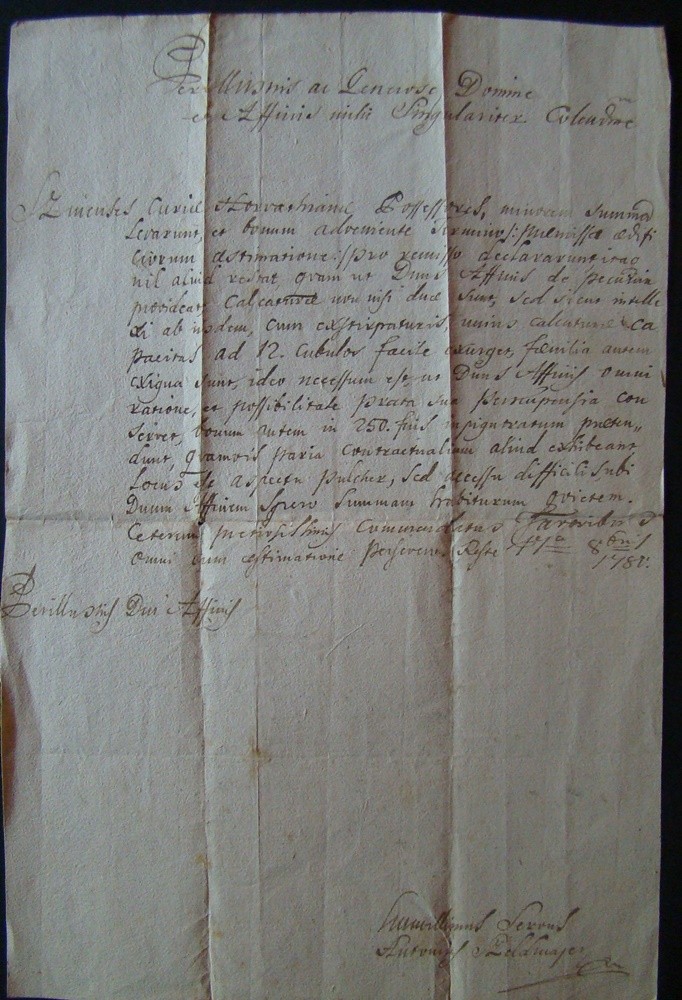 Perillustris ac Generose Domine
et Affinis mihi Singulariter Colendme
Curiae Horvathianae Possessores, minorem Summam
Levarunt, et bonum adveniente termino /: praemissa aedifi
ciorum aestimatione :/ pro remisso declararunt itaq
nil aliud restat quam ut Dnus Affinis de pecunia
provideat, Calcaturae non nisi duae sunt, sed sicut intelle
xi ab iisdem, cum exstirpaturis, unius calcaturae ca
pacitas ad 12. Cubulos facile exurget, faenilia autem
exigua sunt, ideo necessum est, ut Dnus Affinis omni
ratione, et possibilitate prata sua conser
servet, bonum autem in 250. fnis inpignoratum praeten„
dunt, quamvis paria Contractualium aliud exhibeant
Locus est aspectu pulcher, sed accessu difficili, ubi
Dnum Affinem Spero Summam habiturum quietem.
Ceterum pretiosissimis Commendatus Favoribus
omni cum aestimatione persevero Reste 8bris
178
Perillustris Dni Affinis
humillimus Servus
Antonius